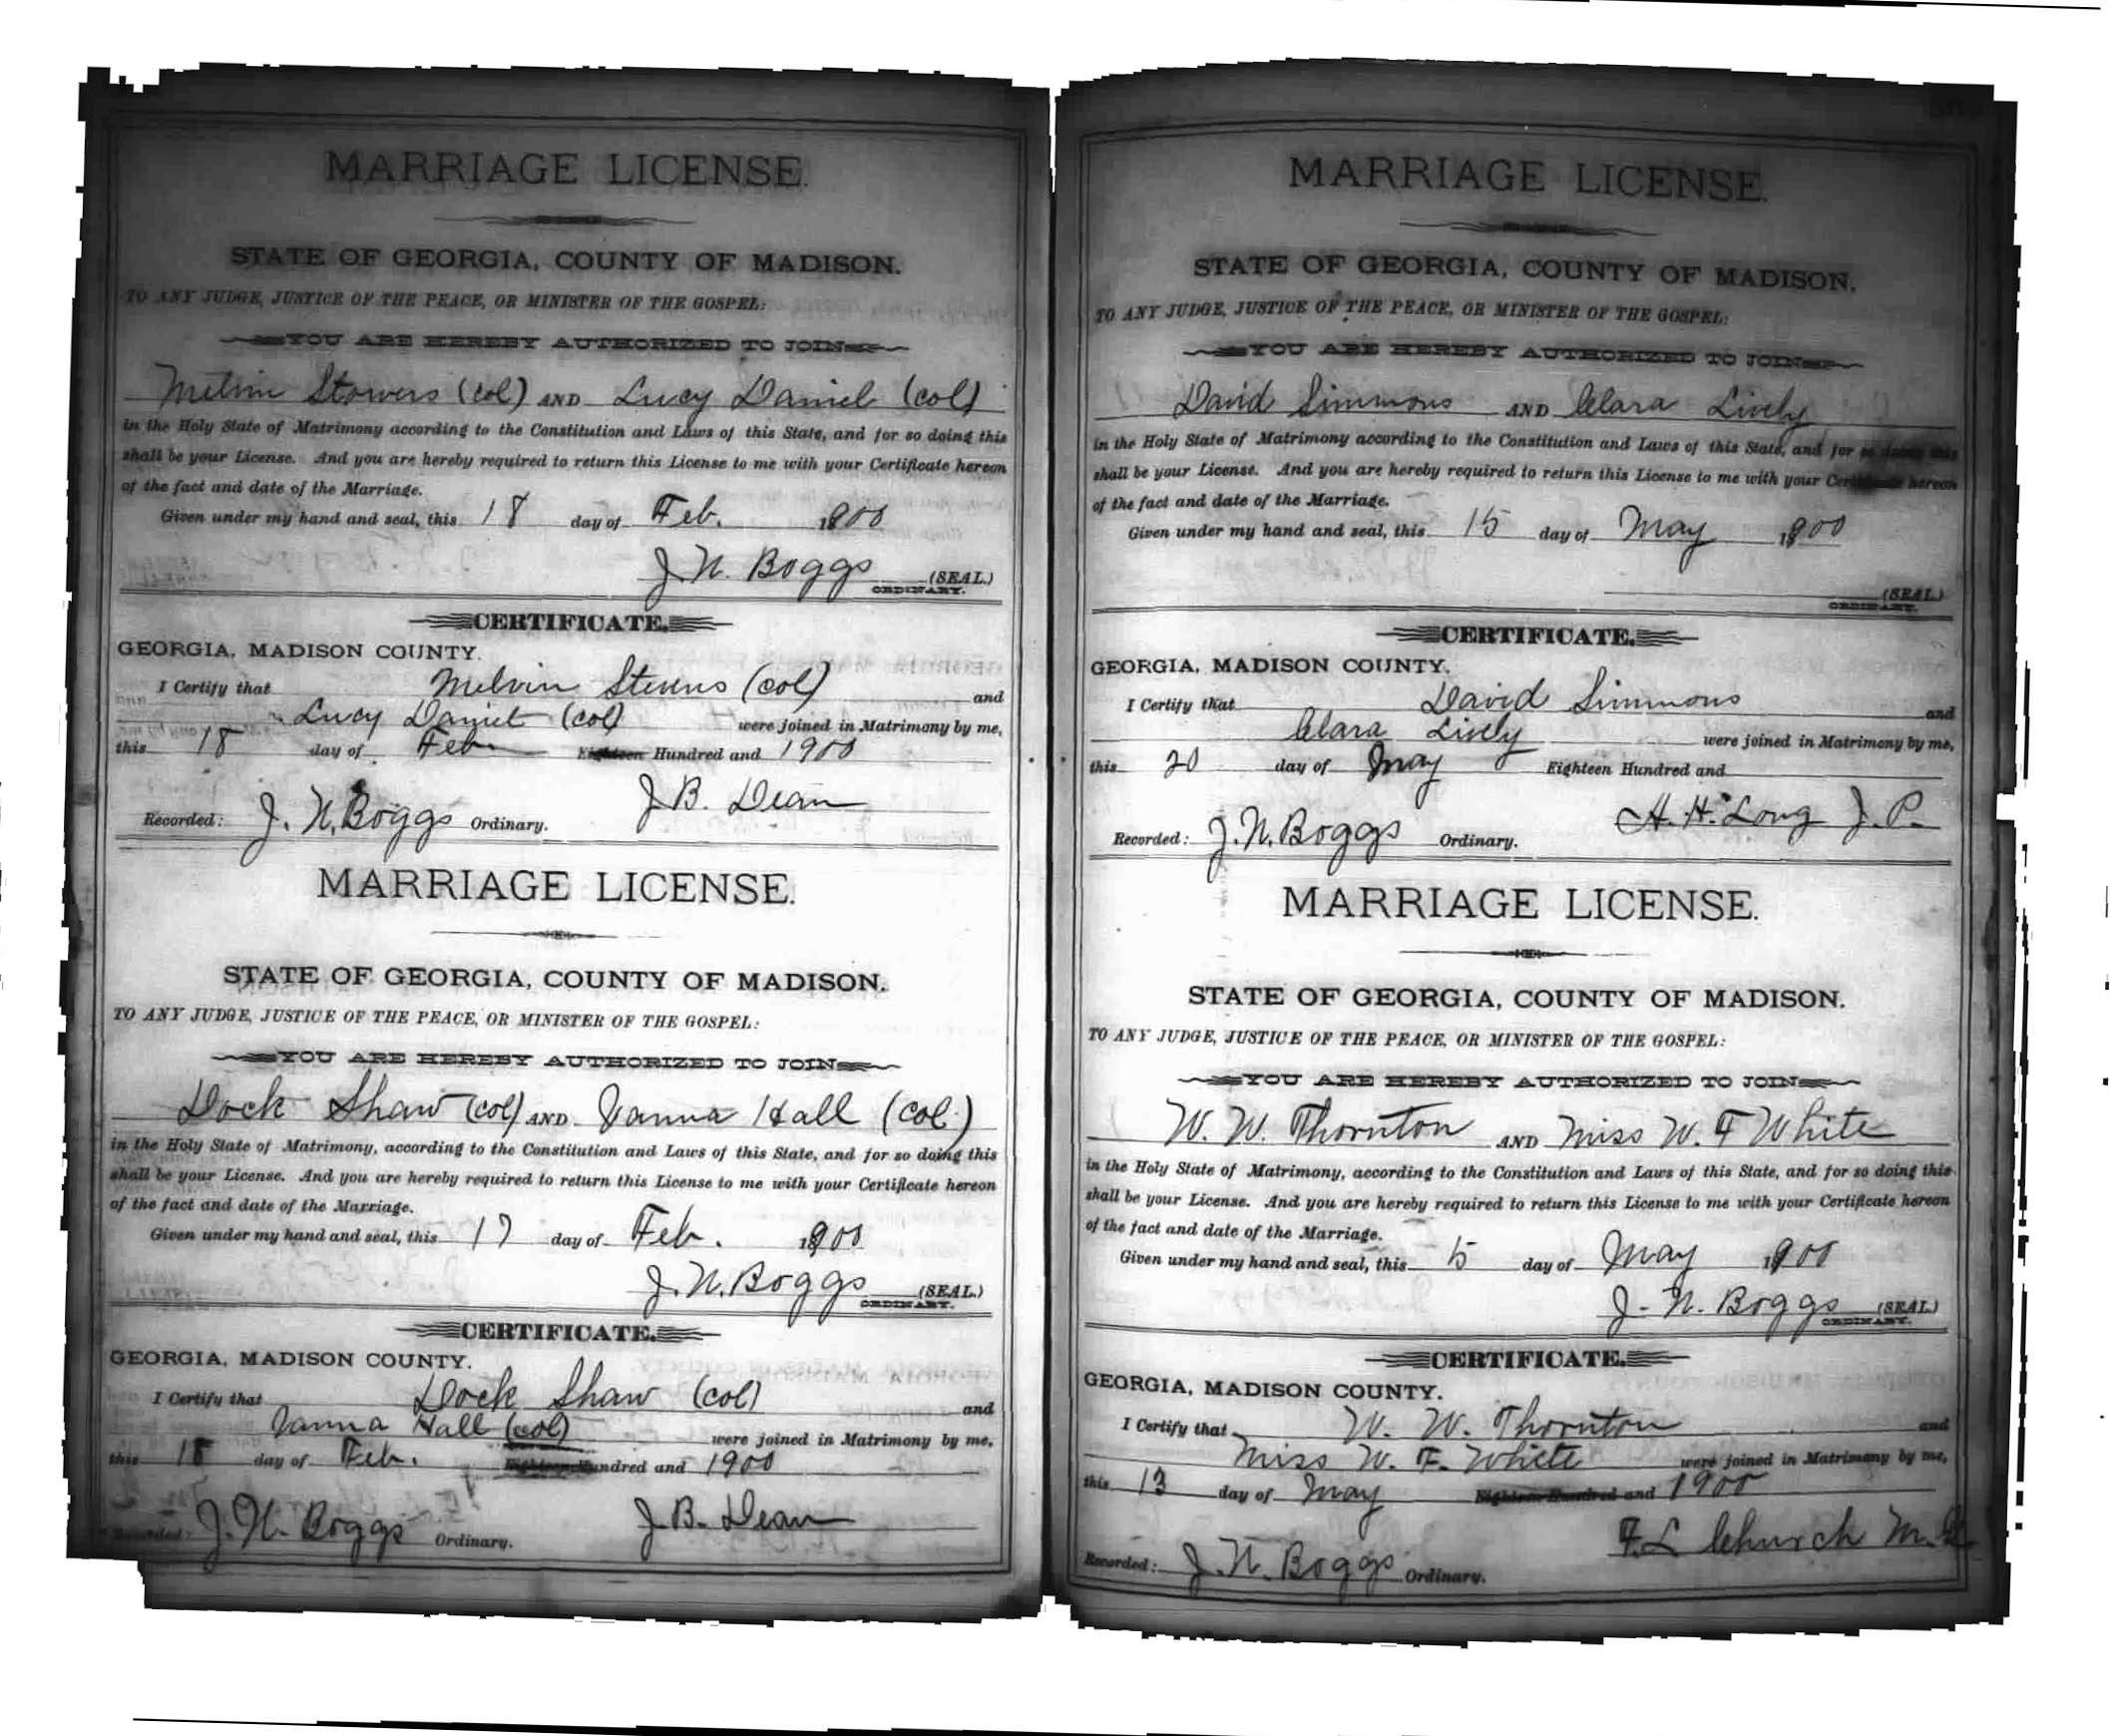 MARRIAGE LICENSE.
STATE OF GEORGIA, COUNTY OF MADISON.
TO ANY JUDGE, JUSTICE OF THE PEACE, OR MINISTER OF THE GOSPEL:
YOU ARE HEREBY AUTHORIZED TO JOIN
Melvin Stowers (col) AND Lucy Daniel (col)
in the Holy State of Matrimony according to the Constitution and Laws of this State, and for so doing this
shall be your License. And you are hereby required to return this License to me with your Certificate hereon
of the fact and date of the Marriage.
Given under my hand and seal, this 18 day of Feb. 1900
J. N. Boggs (SEAL.)
ORDINARY.
CERTIFICATE.
GEORGIA, MADISON COUNTY.
I Certify that Melvin Stevens (col) and
Lucy Daniel (col) were joined in Matrimony by me,
this 18 day of Feb Eighteen Hundred and 1900
Recorded: J. N. Boggs Ordinary. J B. Dean
MARRIAGE LICENSE.
STATE OF GEORGIA, COUNTY OF MADISON.
TO ANY JUDGE, JUSTICE OF THE PEACE, OR MINISTER OF THE GOSPEL:
YOU ARE HEREBY AUTHORIZED TO JOIN
Dock Shaw (col) AND Vanna Hall (col)
in the Holy State of Matrimony, according to the Constitution and Laws of this State, and for so doing this
shall be your License. And you are hereby required to return this License to me with your Certificate hereon
of the fact and date of the Marriage.
Given under my hand and seal, this 17 day of Feb. 1900
J. N. Boggs (SEAL.)
ORDINARY.
CERTIFICATE.
GEORGIA, MADISON COUNTY.
I Certify that Dock Shaw (col) and
Vanna Hall (col) were joined in Matrimony by me,
this 18 day of Feb. Eighteen Hundred and 1900
Recorded: J. N. Boggs Ordinary. J. B. Dean
MARRIAGE LICENSE.
STATE OF GEORGIA, COUNTY OF MADISON.
TO ANY JUDGE, JUSTICE OF THE PEACE, OR MINISTER OF THE GOSPEL:
YOU ARE HEREBY AUTHORIZED TO JOIN
David Simmons AND Clara Lively
in the Holy State of Matrimony according to the Constitution and Laws of this State, and for so doing this
shall be your License. And you are hereby required to return this License to me with your Certificate hereon
of the fact and date of the Marriage.
Given under my hand and seal, this 15 day of May 1900
(SEAL.)
ORDINARY.
CERTIFICATE.
GEORGIA, MADISON COUNTY.
I Certify that David Simmons and
Clara Lively were joined in Matrimony by me,
this 20 day of May Eighteen Hundred and
Recorded: J. N. Boggs Ordinary. H. H. Long J. P.
MARRIAGE LICENSE.
STATE OF GEORGIA, COUNTY OF MADISON.
TO ANY JUDGE, JUSTICE OF THE PEACE, OR MINISTER OF THE GOSPEL:
YOU ARE HEREBY AUTHORIZED TO JOIN
W. W. Thornton AND Miss W. F White
in the Holy State of Matrimony, according to the Constitution and Laws of this State, and for so doing this
shall be your License. And you are hereby required to return this License to me with your Certificate hereon
of the fact and date of the Marriage.
Given under my hand and seal, this 5 day of May 1900
J. N. Boggs (SEAL.)
ORDINARY.
CERTIFICATE.
GEORGIA, MADISON COUNTY.
I Certify that W. W. Thornton and
Miss W. F. White were joined in Matrimony by me,
this 13 day of May Eighteen Hundred and 1900
Recorded: J. N. Boggs Ordinary. F. L Church M. G